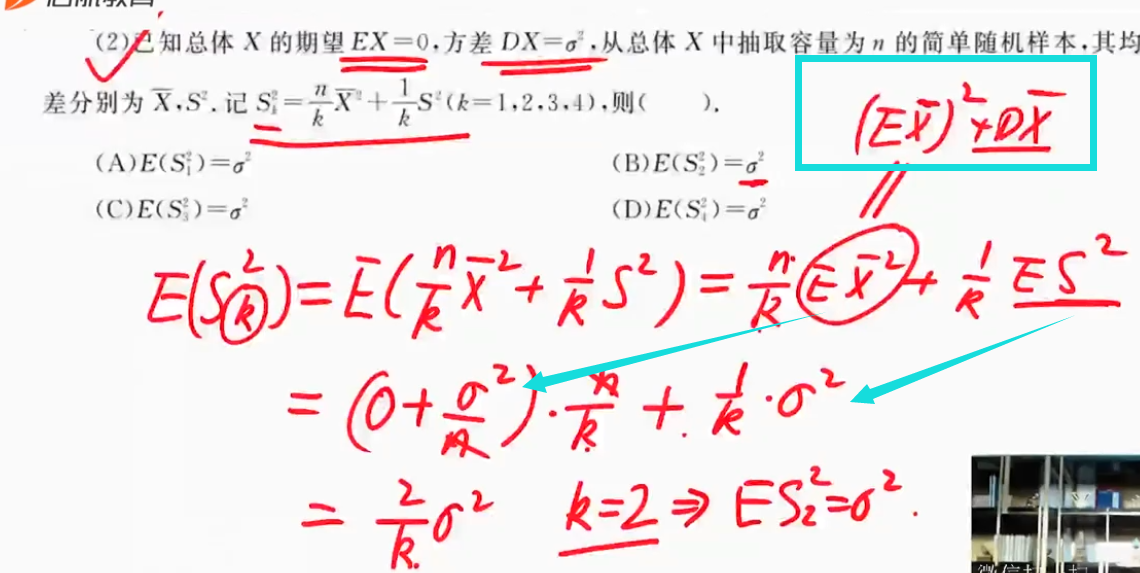 启航教育
(2)已知总体 X 的期望 EX=0,方差 DX=σ²,从总体 X 中抽取容量为 n 的简单随机样本,其均
差分别为 X̄,S². 记 S²ₖ=n/k X̄²+1/k S²(k=1,2,3,4),则( ).
(EX̄)²+DX̄
(A)E(S₁²)=σ²
(B)E(S₂²)=σ²
(C)E(S₃²)=σ²
(D)E(S₄²)=σ²
E(S²ₖ)=E(n/k X̄²+1/k S²)=n/k EX̄²+1/k ES²
=(0+σ²/n)·n/k+1/k·σ²
=2/k σ² k=2⇒ES₂²=σ².
微信扫一扫